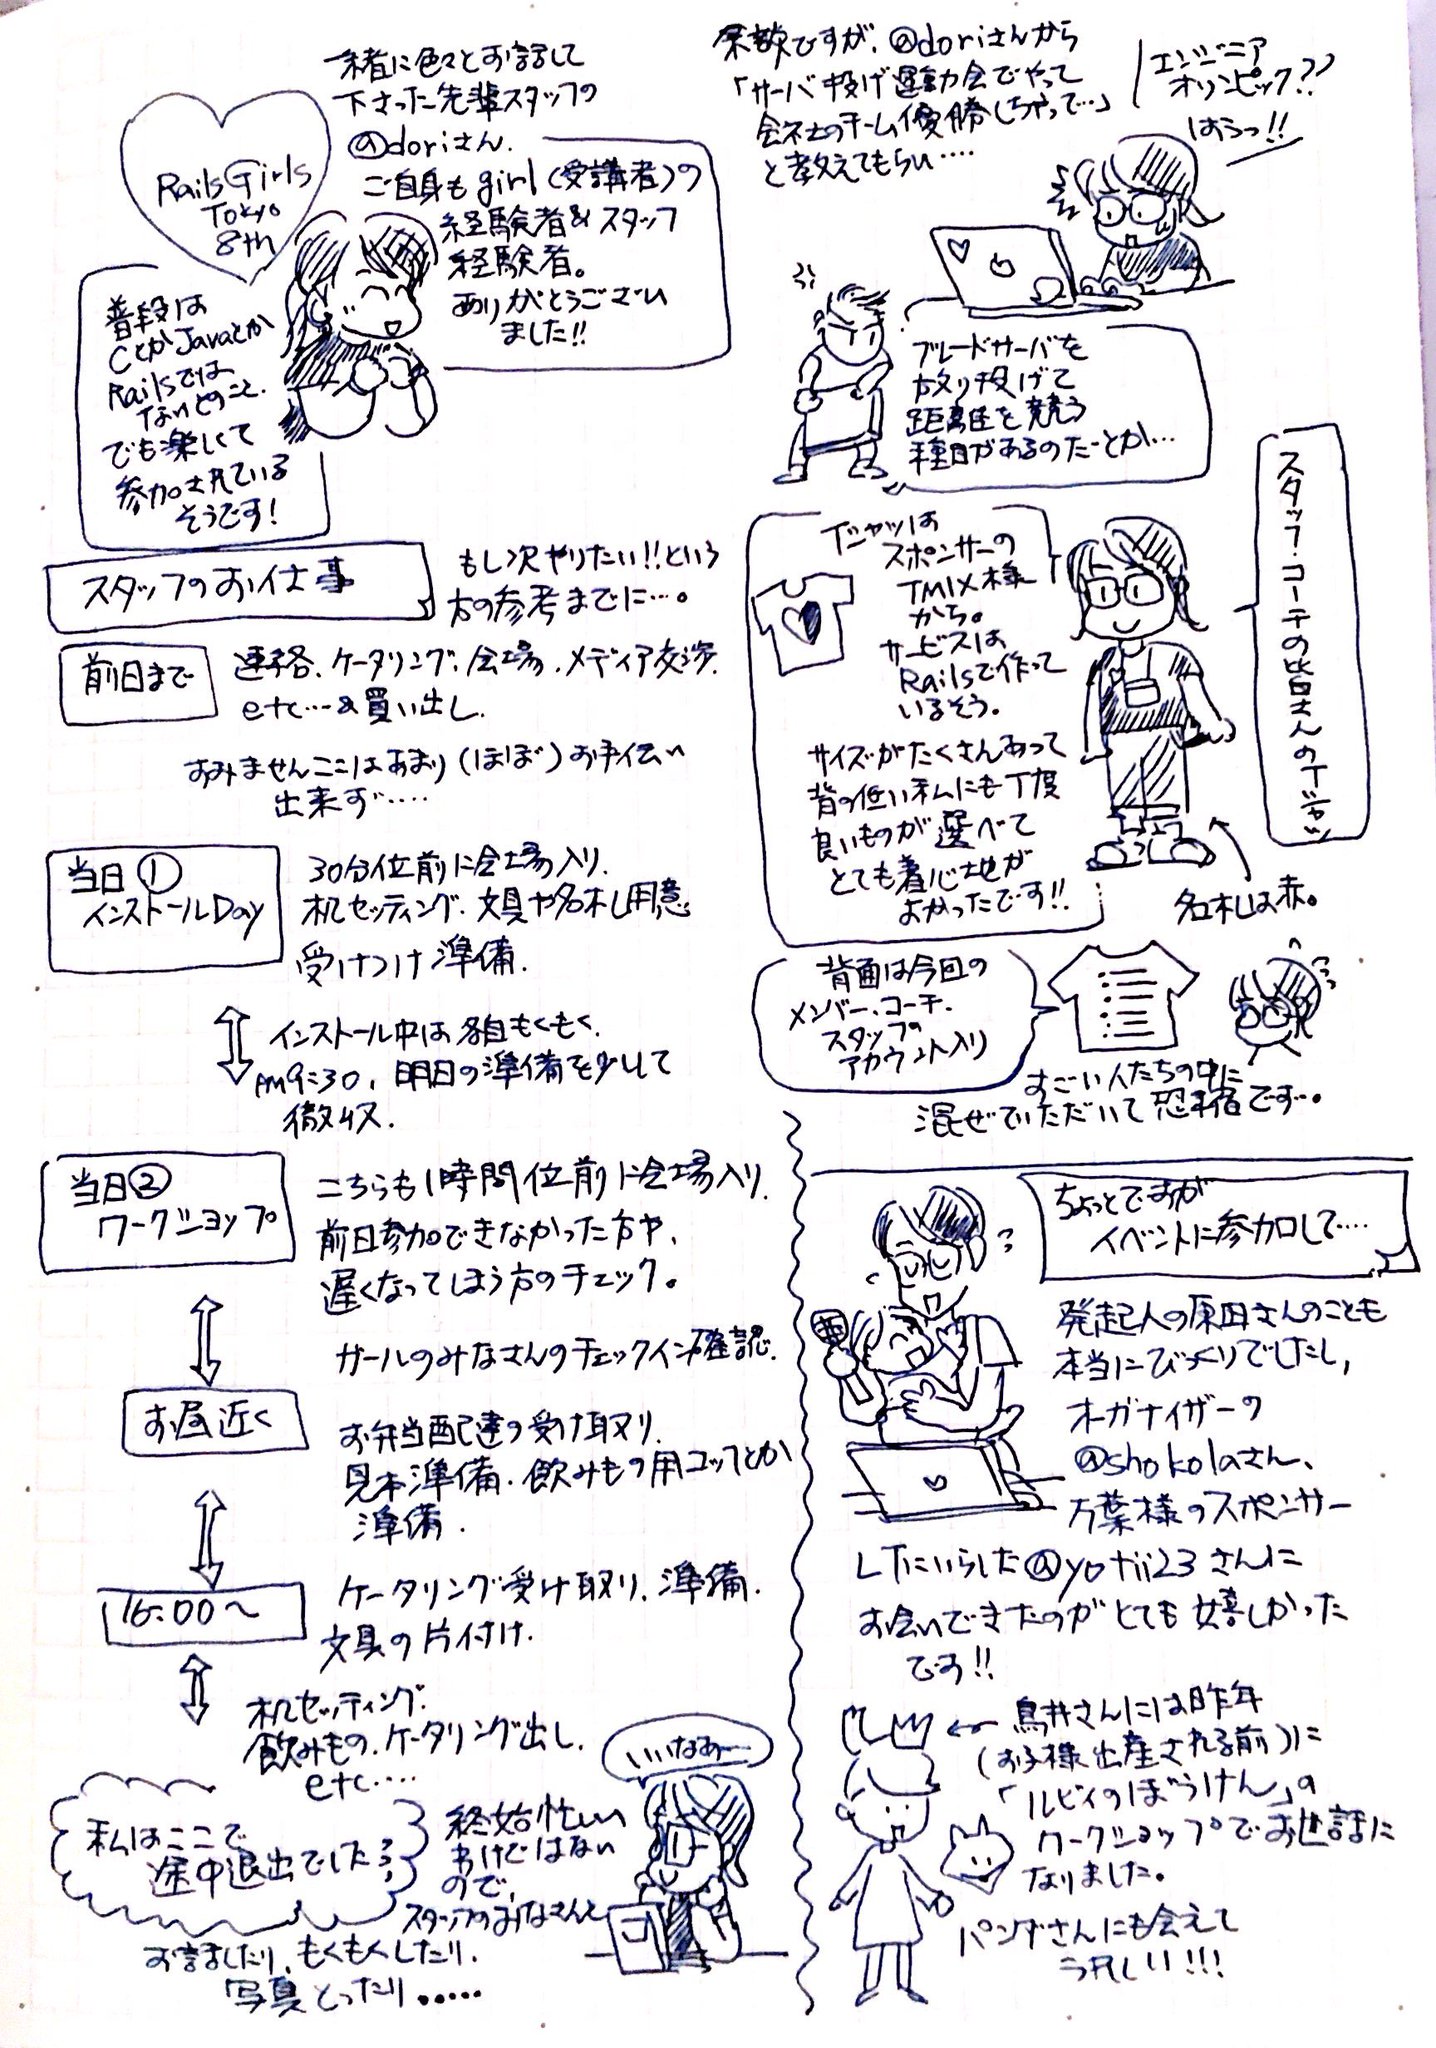 Rails Girls
Tokyo
8th
一緒に色々とお話して
下さった先輩スタッフの
@doriさん。
ご自身もgirl(受講者)の
経験者&スタッフ
経験者。
ありがとうござい
ました!!
普段は
CとかJavaとか
Railsでは
ないとのこと。
でも楽しくて
参加されている
そうです!
スタッフのお仕事
もし次やりたい!!という
方の参考までに…。
前日まで
連絡、ケータリング、会場、メディア交渉
etc…&買い出し
すみませんここはあまり(ほぼ)お手伝い
出来ず….
当日①
インストールDay
30分位前に会場入り
机セッティング、文具や名札用意
受けつけ準備.
インストール中は各自もくもく.
PM9:30、明日の準備を少しして
撤収.
当日②
ワークショップ
こちらも1時間位前に会場入り
前日参加できなかった方や、
遅くなってしまう方のチェック。
ガールのみなさんのチェックイン確認.
お昼近く
お弁当配達の受け取り
見本準備、飲みもの用コップとか
準備.
16:00〜
ケータリング受け取り、準備.
文具の片付け.
机セッティング.
飲みもの、ケータリング出し.
etc….
私はここで
途中退出でした
終始忙しい
わけではない
ので、
スタッフのみなさんと
お話したり、もくもくしたり、
写真とったり.....
いいなあー
余談ですが、@doriさんから
「サーバ投げ運動会でやって
会社のチーム優勝しちゃって…」
と教えてもらい….
エンジニア
オリンピック??
はうっ!!
ブレードサーバを
放り投げて
距離を競う
種目があるのだーとか…
スタッフ・コーチの皆さんのTシャツ
Tシャツは
スポンサーの
TMIX様
から。
サービスは
Railsで作って
いるそう。
サイズがたくさんあって
背の低い私にも丁度
良いものが選べて
とても着心地が
よかったです!!
名札は赤。
背面は今回の
メンバー、コーチ、
スタッフの
アカウント入り
すごい人たちの中に
混ぜていただいて恐縮です…。
ちょっとですが
イベントに参加して….
発起人の原田さんのことも
本当にびっくりでしたし,
オーガナイザーの
@shokolaさん、
万葉様のスポンサー
LTにいらした@yotii23さんに
お会いできたのがとても嬉しかった
です!!
←鳥井さんには昨年
(お子様出産される前)に
「ルビィのぼうけん」の
ワークショップでお世話に
なりました。
パンダさんにも会えて
うれしい!!!